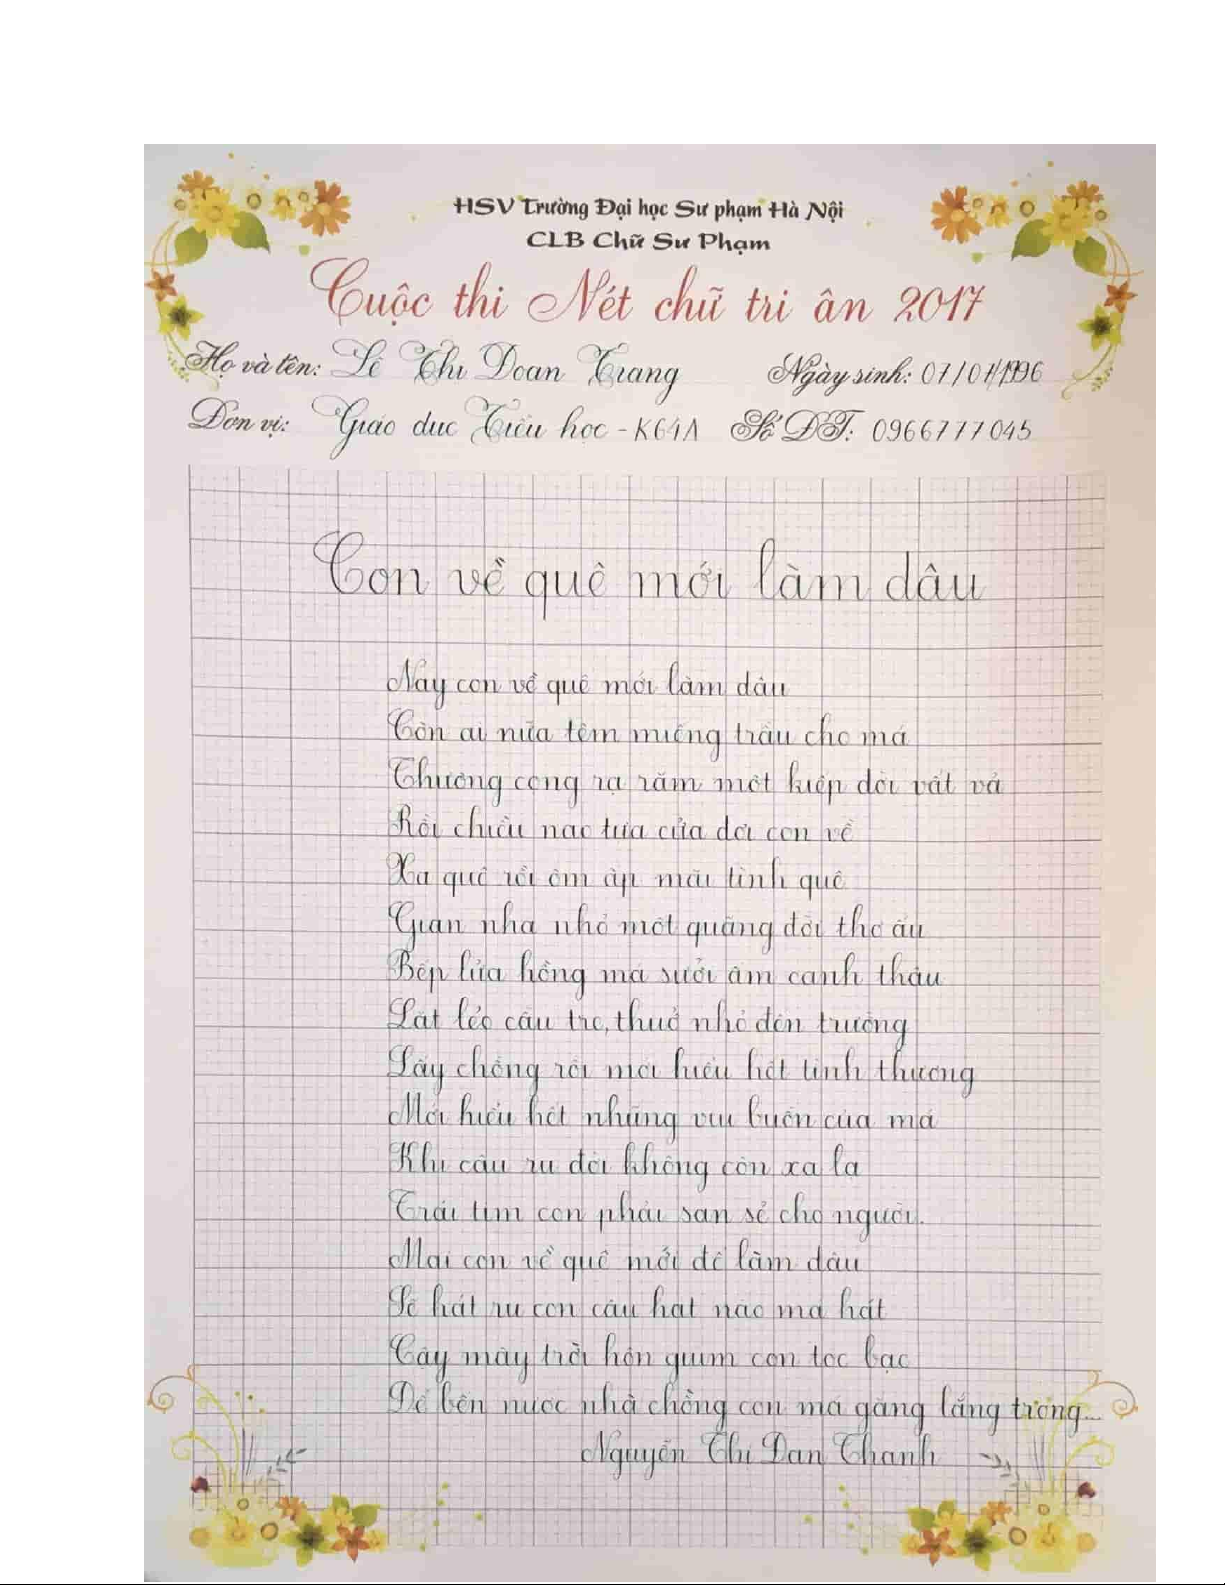 HSV Trường Đại học Sư phạm Hà Nội
CLB Chữ Sư Phạm
Cuộc thi Nét chữ tri ân 2017
Họ và tên: Lê Thị Đoan Trang Ngày sinh: 07/01/1996
Đơn vị: Giáo dục Tiểu học - K64A Số ĐT: 0966777045
Con về quê mới làm dâu
Nay con về quê mới làm dâu
Còn ai nữa têm miếng trầu cho má
Thương cọng rạ răm một kiếp đời vất vả
Rồi chiều nao tựa cửa đợi con về
Xa quê rồi ôm ấp mãi tình quê
Gian nhà nhỏ một quãng đời thơ ấu
Bếp lửa hồng má sưởi ấm canh thâu
Lắt lẻo cầu tre, thuở nhỏ đến trường
Lấy chồng rồi mới hiểu hết tình thương
Mới hiểu hết những vui buồn của má
Khi câu ru đời không còn xa lạ
Trái tim con phải san sẻ cho người.
Mai con về quê mới để làm dâu
Sẽ hát ru con câu hát nào má hát
Cậy mây trời hôn giùm con tóc bạc
Để bên nước nhà chồng con má gắng lắng trông...
Nguyễn Thị Đan Thanh